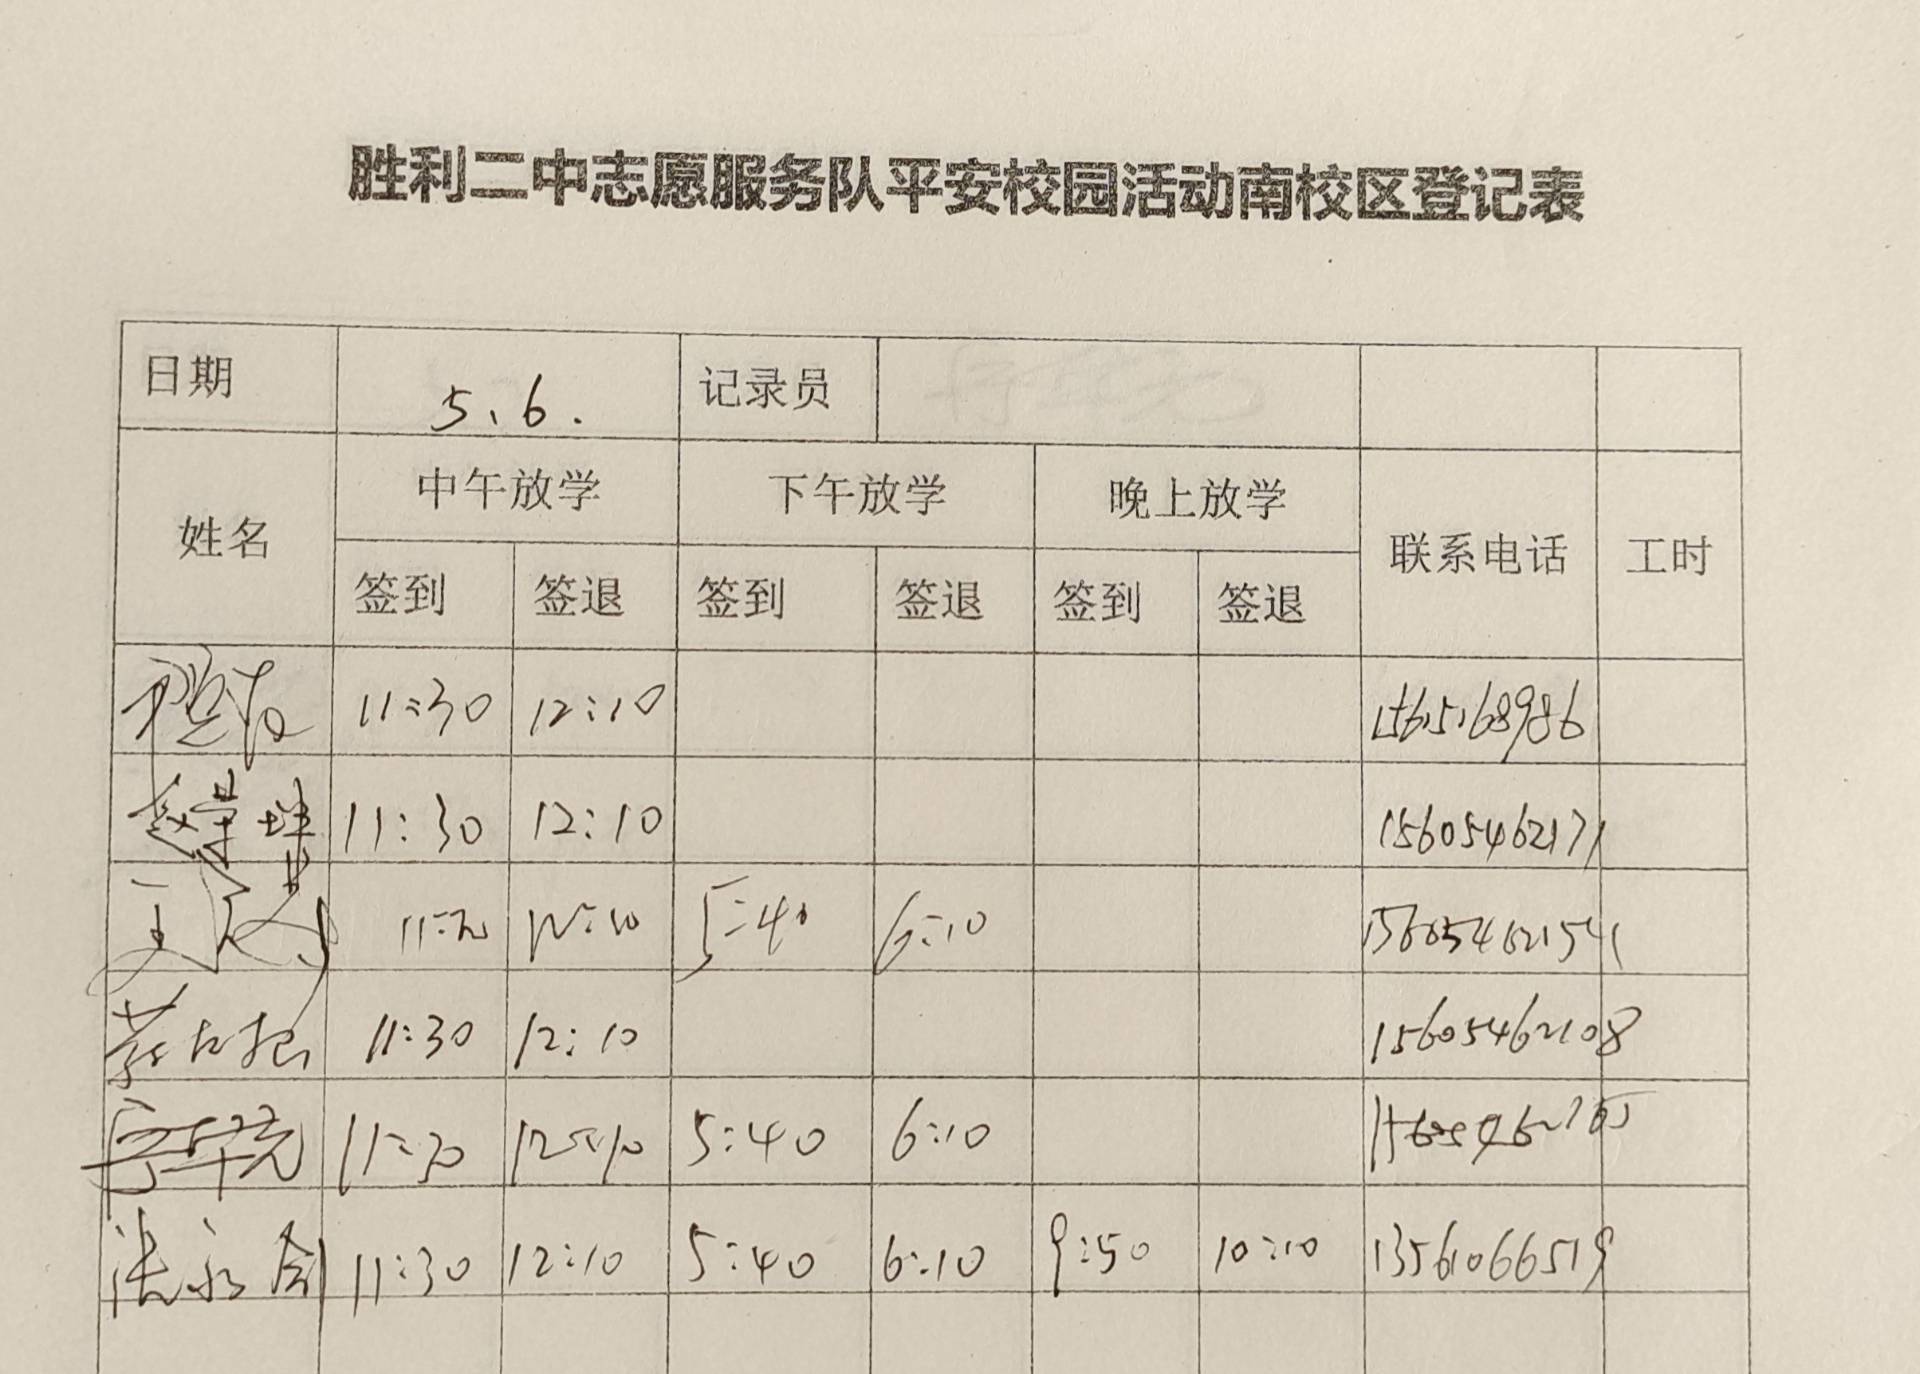 胜利二中志愿服务队平安校园活动南校区登记表
日期 5.6. 记录员
姓名 中午放学 下午放学 晚上放学 联系电话 工时
签到 签退 签到 签退 签到 签退
11:30 12:10
11:30 12:10 15605462171
11:30 12:10 5:40 6:10 15605462154
11:30 12:10 15605462108
11:30 12:10 5:40 6:10
张永剑 11:30 12:10 5:40 6:10 9:50 10:10 13561066519